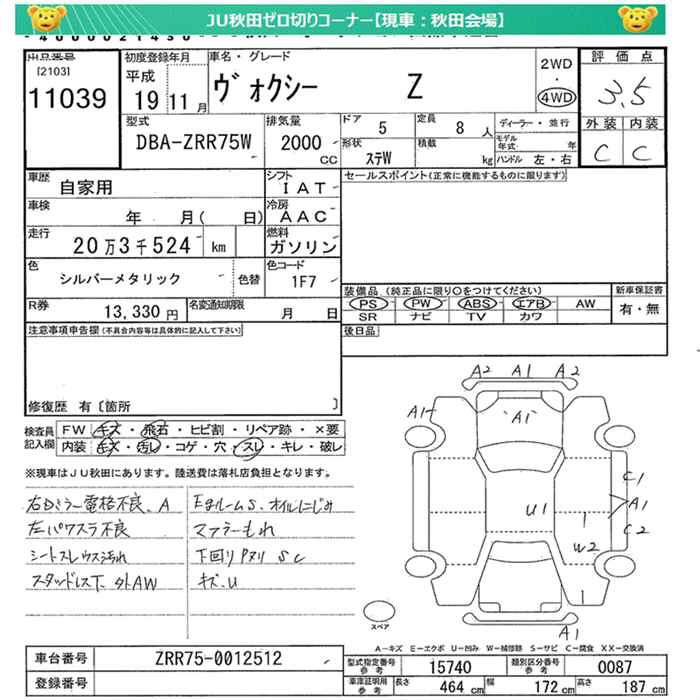 JU秋田ゼロ切りコーナー【現車：秋田会場】
出品番号
[2103]
11039
初度登録年月
平成
19 11 月
車名・グレード
ヴォクシー Z
2WD
・
4WD
評価点
3.5
外装 内装
C C
型式
DBA-ZRR75W
排気量
2000
CC
ドア 5
定員 8 人
ディーラー・並行
モデル年式 年
形状 ステW
積載 kg
ハンドル 左・右
車歴
自家用
シフト
IAT
セールスポイント(正常に機能するものに限ります)
車検
年 月( 日)
冷房
AAC
走行
20万3千524 km
燃料
ガソリン
色
シルバーメタリック
色替
色コード
1F7
装備品 (純正品に限り○をつけてください)
PS PW ABS エアB AW
SR ナビ TV カワ
新車保証書
有・無
R券
13,330 円
名変通知期限
月 日
後日品
注意事項申告欄(不具合内容等は具体的に記入して下さい)
修復歴 有〔箇所 〕
検査員
記入欄
FW キズ・飛石・ヒビ割・リペア跡・×要
内装 キズ・汚れ・コゲ・穴・スレ・キレ・破レ
※現車はJU秋田にあります。陸送費は落札店負担となります。
右Dミラー電格不良、A
左パワスラ不良
シートスレウス汚れ
スタッドレスT、外AW
EgルームS、オイルにじみ
マフラーもれ
下回りPヌリ SC
キズ、U
A2 A1 A2
A1
A1
C1
A1
C2
U1
W2
A1
スペア
A-キズ E-エクボ U-凹み W-補修跡 S-サビ C-腐食 XX-交換済
車台番号
ZRR75-0012512
登録番号
型式指定番号
参考
15740
類別区分番号
参考
0087
車庫証明用
参考
長さ 464 cm
幅 172 cm
高さ 187 cm